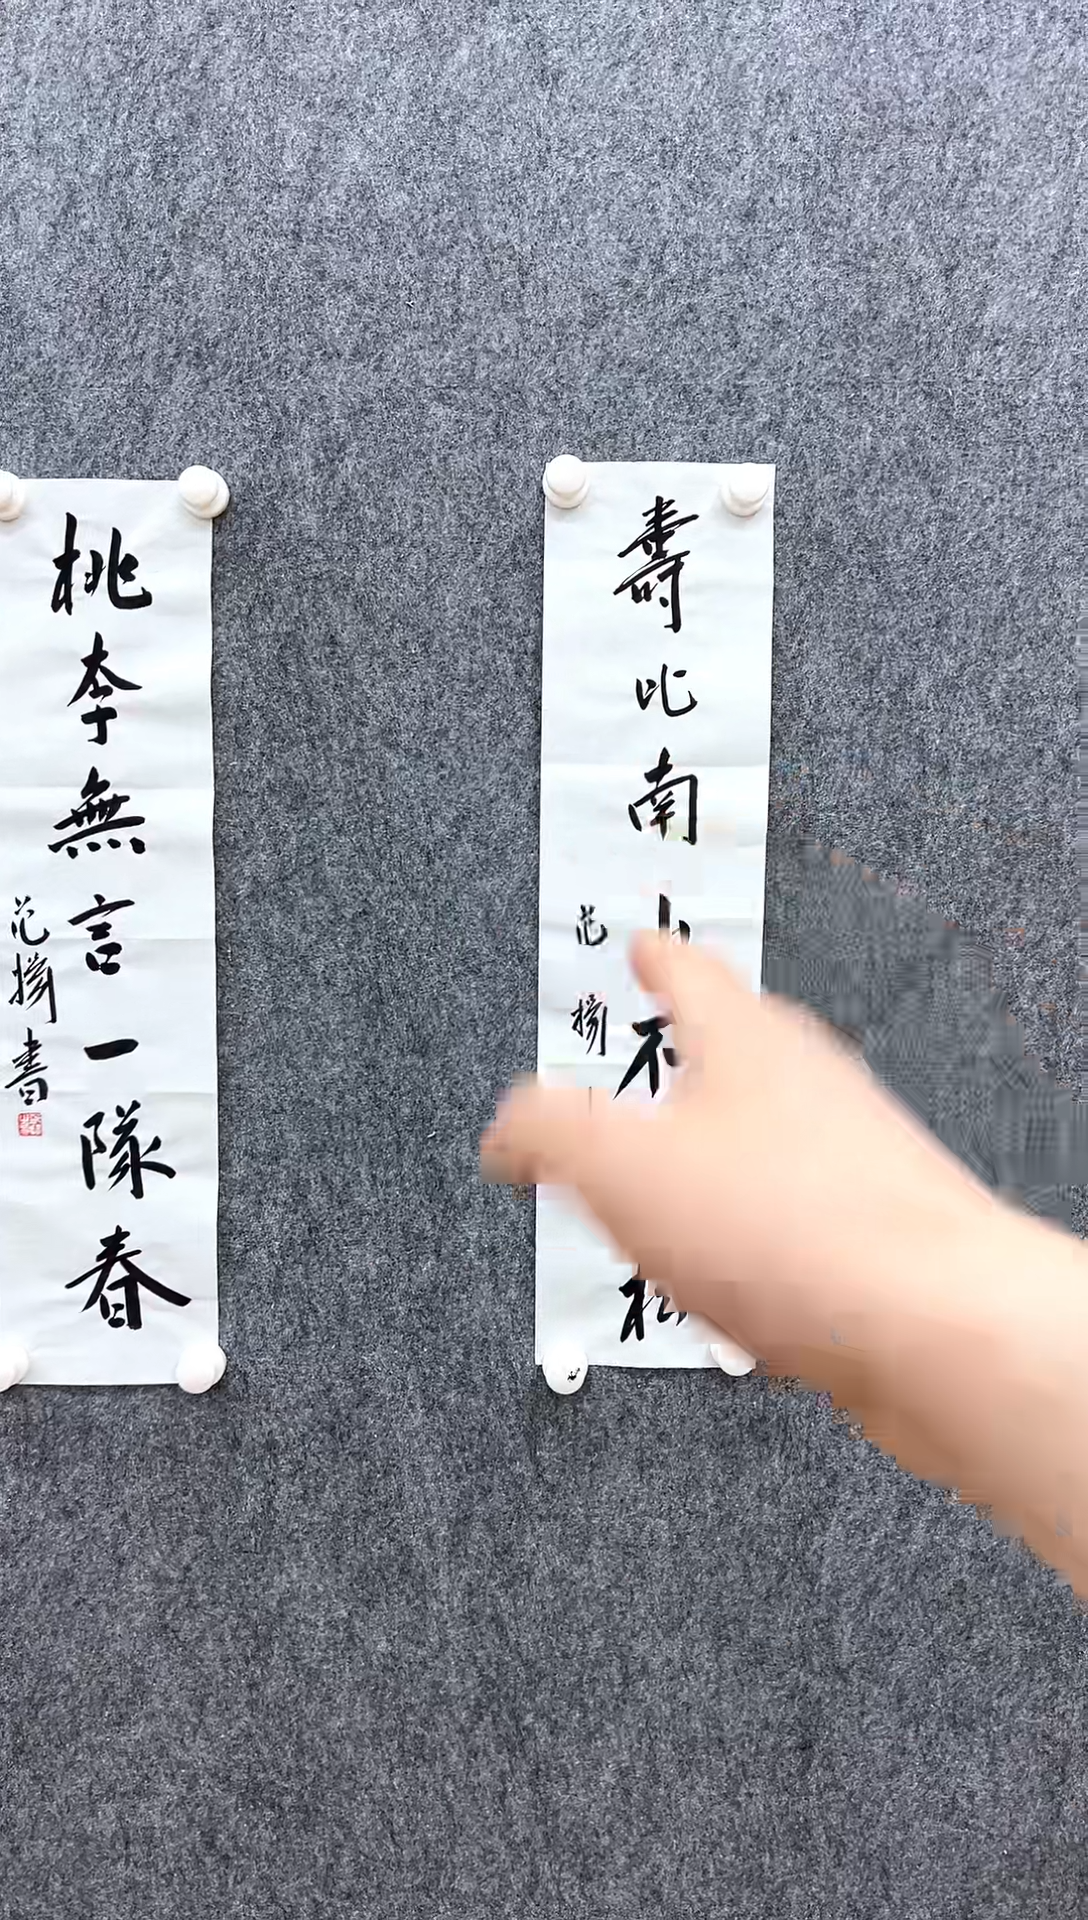 壽比南山不
松
范揚
桃李無言一隊春
范揚書